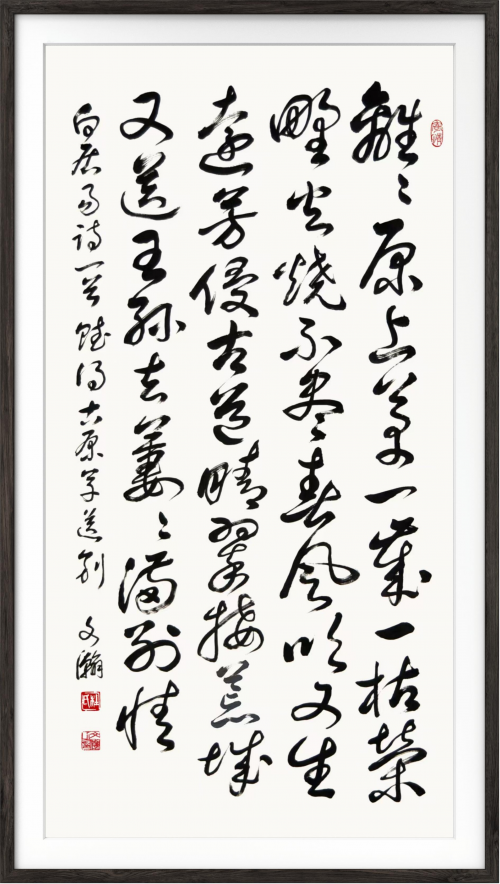 離〻原上草一歲一枯榮
野火燒不盡春風吹又生
遠芳侵古道晴翠接荒城
又送王孫去萋〻滿別情
白居易詩一首賦得古原草送別 文瀚